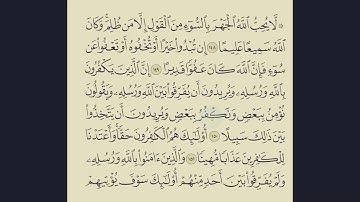 ۞ لَّا يُحِبُّ ٱللَّهُ ٱلْجَهْرَ بِٱلسُّوٓءِ مِنَ ٱلْقَوْلِ إِلَّا مَن ظُلِمَ ۚ وَكَانَ
ٱللَّهُ سَمِيعًا عَلِيمًا ١٤٨ إِن تُبْدُوا۟ خَيْرًا أَوْ تُخْفُوهُ أَوْ تَعْفُوا۟ عَن
سُوٓءٍ فَإِنَّ ٱللَّهَ كَانَ عَفُوًّا قَدِيرًا ١٤٩ إِنَّ ٱلَّذِينَ يَكْفُرُونَ
بِٱللَّهِ وَرُسُلِهِۦ وَيُرِيدُونَ أَن يُفَرِّقُوا۟ بَيْنَ ٱللَّهِ وَرُسُلِهِۦ وَيَقُولُونَ
نُؤْمِنُ بِبَعْضٍ وَنَكْفُرُ بِبَعْضٍ وَيُرِيدُونَ أَن يَتَّخِذُوا۟
بَيْنَ ذَٰلِكَ سَبِيلًا ١٥٠ أُو۟لَـٰٓئِكَ هُمُ ٱلْكَـٰفِرُونَ حَقًّا ۚ وَأَعْتَدْنَا
لِلْكَـٰفِرِينَ عَذَابًا مُّهِينًا ١٥١ وَٱلَّذِينَ ءَامَنُوا۟ بِٱللَّهِ وَرُسُلِهِۦ
وَلَمْ يُفَرِّقُوا۟ بَيْنَ أَحَدٍ مِّنْهُمْ أُو۟لَـٰٓئِكَ سَوْفَ يُؤْتِيهِمْ